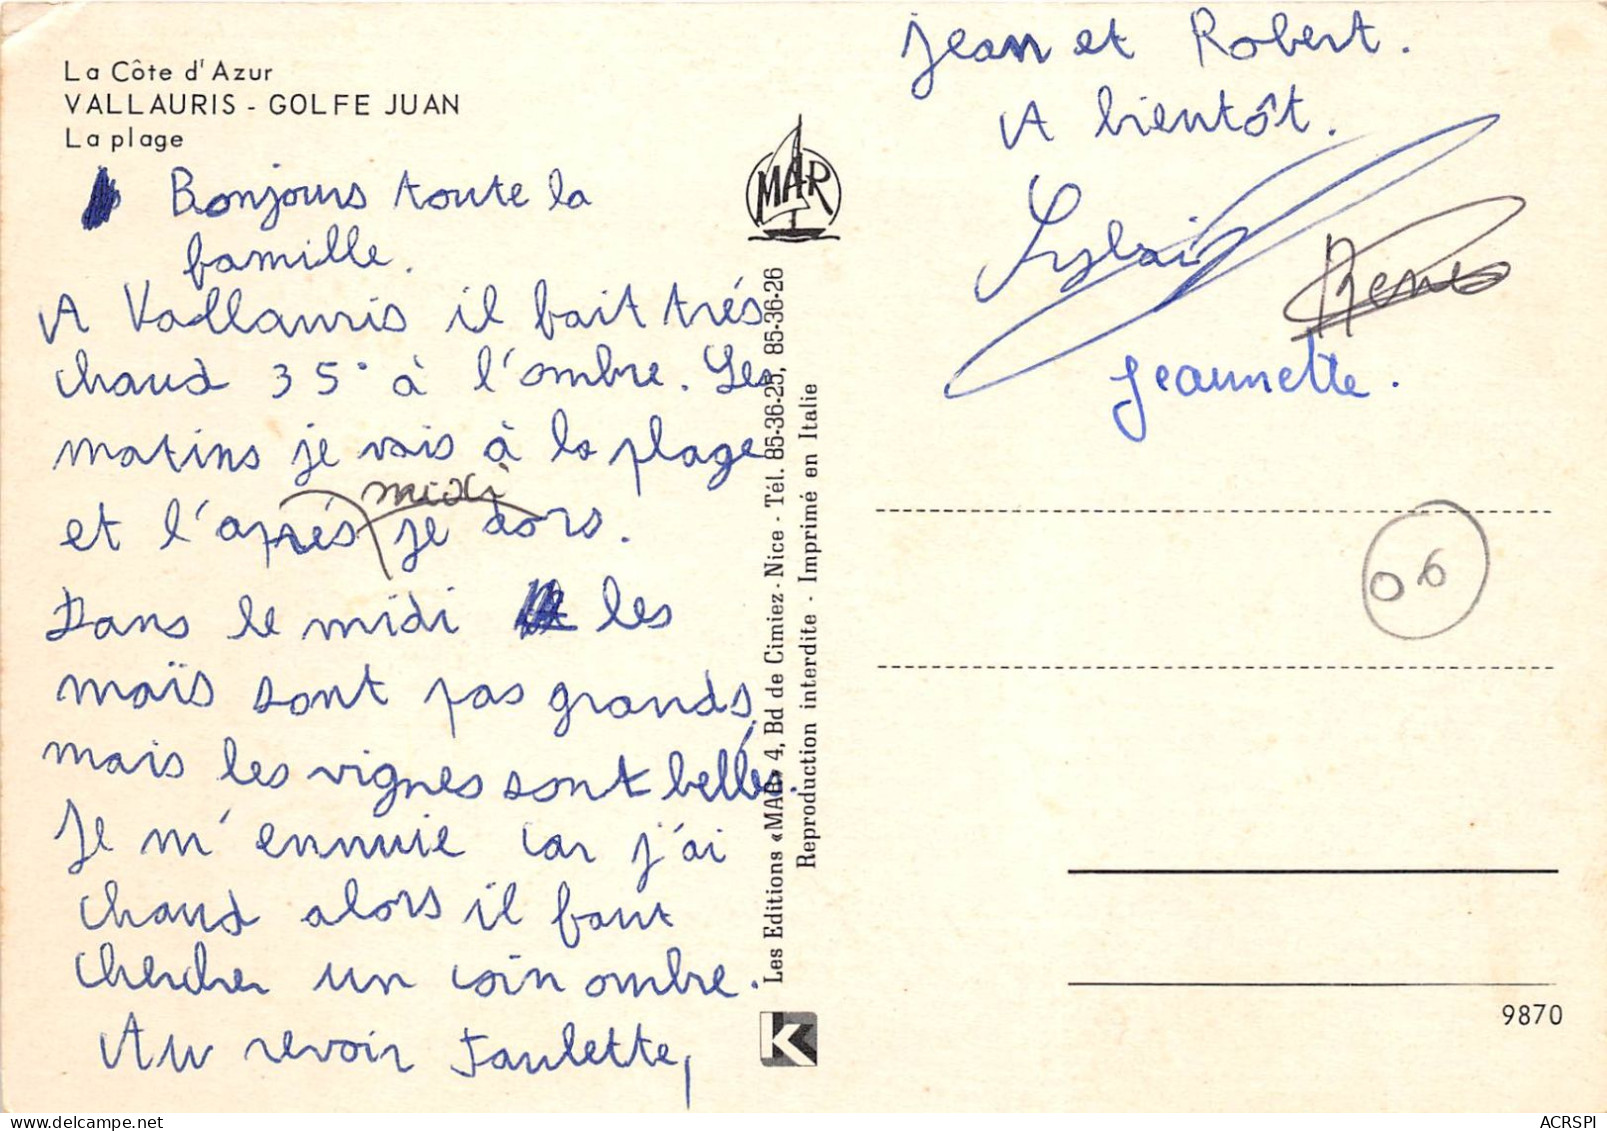 La Côte d'Azur
VALLAURIS - GOLFE JUAN
La plage
Bonjours toute la
famille.
A Vallauris il fait trés
chaud 35° à l'ombre. Les
matins je vais à la plage
midi
et l'après je dors.
Dans le midi les
maïs sont pas grands
mais les vignes sont belles.
Je m'ennuie car j'ai
chaud alors il faut
chercher un coin ombre.
Au revoir Paulette,
Jean et Robert.
A bientôt.
Sylvain
René
Jeannette.
MAR
Les Editions «MAR» 4, Bd de Cimiez - Nice - Tél. 85-36-25, 85-36-26
Reproduction interdite - Imprimé en Italie
06
K
9870
ACRSPI